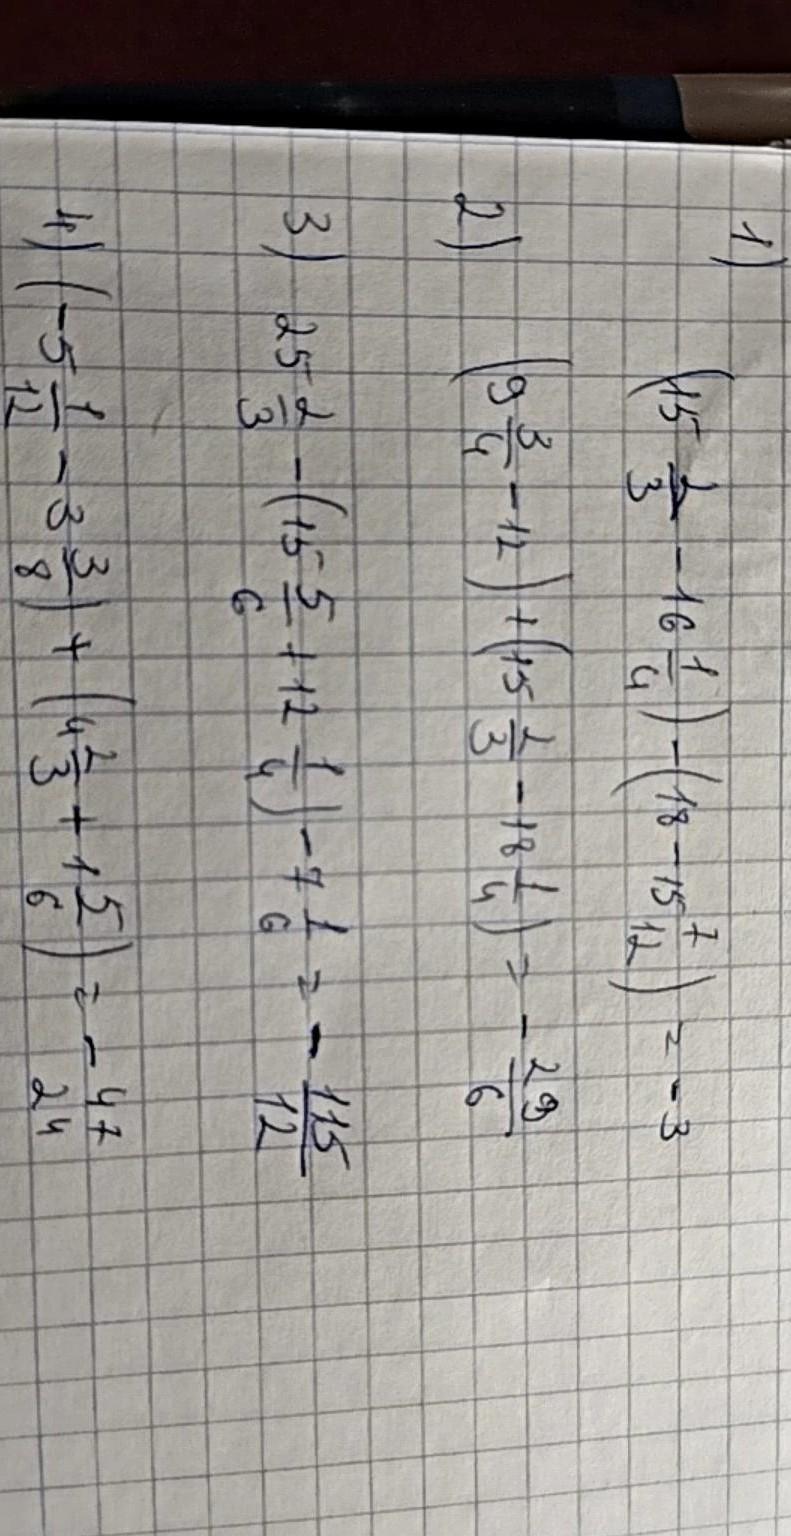 1) (15 2/3 - 16 1/4) - (18 - 15 7/12) = -3
2) (9 3/4 - 12) + (15 2/3 - 18 1/4) = - 29/6
3) 25 2/3 - (15 5/6 + 12 1/4) - 7 1/6 = - 115/12
4) (-5 1/12 - 3 3/8) + (4 2/3 + 1 5/6) = - 47/24